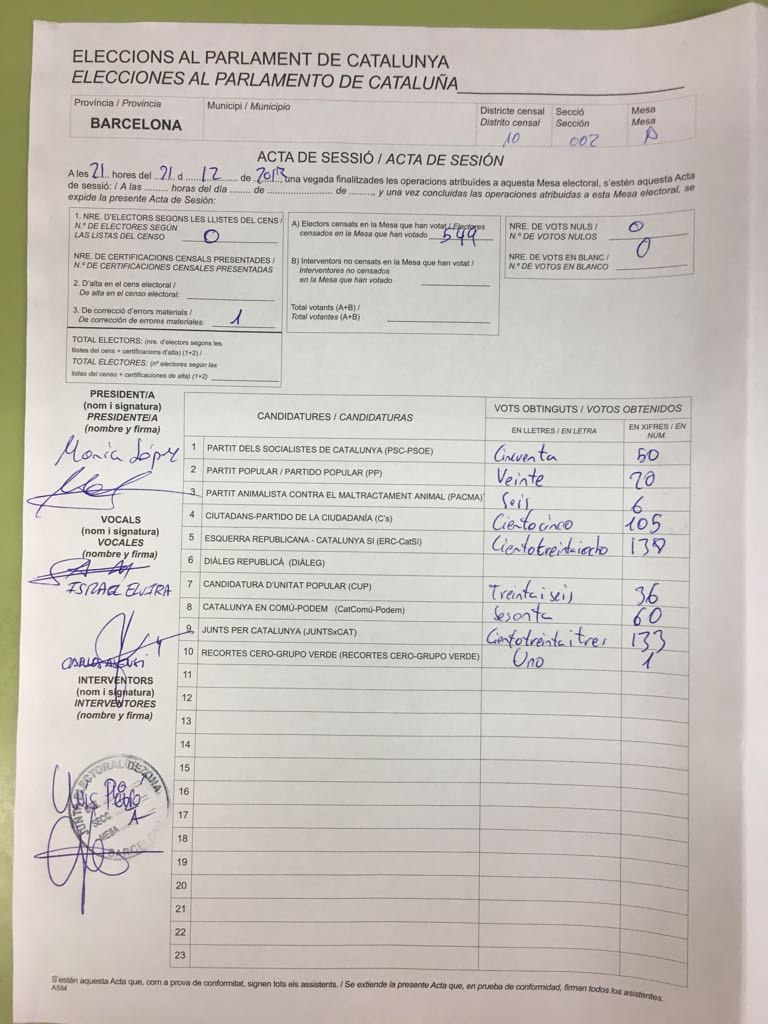 ELECCIONS AL PARLAMENT DE CATALUNYA
ELECCIONES AL PARLAMENTO DE CATALUÑA
Província / Provincia
BARCELONA
Municipi / Municipio
Districte censal
Distrito censal
10
Secció
Sección
002
Mesa
Mesa
A
ACTA DE SESSIÓ / ACTA DE SESIÓN
A les 21 hores del 21 d 12 de 2017, una vegada finalitzades les operacions atribuïdes a aquesta Mesa electoral, s'estén aquesta Acta
de sessió: / A las ......... horas del día ........ de .................... de ........, y una vez concluidas las operaciones atribuidas a esta Mesa electoral, se
expide la presente Acta de Sesión:
1. NRE. D'ELECTORS SEGONS LES LLISTES DEL CENS /
N.º DE ELECTORES SEGÚN
LAS LISTAS DEL CENSO 0
NRE. DE CERTIFICACIONS CENSALS PRESENTADES /
N.º DE CERTIFICACIONES CENSALES PRESENTADAS
2. D'alta en el cens electoral /
De alta en el censo electoral:
3. De correcció d'errors materials /
De corrección de errores materiales: 1
TOTAL ELECTORS: (nre. d'electors segons les
llistes del cens + certificacions d'alta) (1+2) /
TOTAL ELECTORES: (nº electores según las
listas del censo + certificaciones de alta) (1+2)
A) Electors censats en la Mesa que han votat / Electores
censados en la Mesa que han votado 549
B) Interventors no censats en la Mesa que han votat /
Interventores no censados
en la Mesa que han votado
Total votants (A+B) /
Total votantes (A+B)
NRE. DE VOTS NULS /
N.º DE VOTOS NULOS 0
NRE. DE VOTS EN BLANC /
N.º DE VOTOS EN BLANCO 0
PRESIDENT/A
(nom i signatura)
PRESIDENTE/A
(nombre y firma)
Monica López
VOCALS
(nom i signatura)
VOCALES
(nombre y firma)
ISRAEL ELVIRA
INTERVENTORS
(nom i signatura)
INTERVENTORES
(nombre y firma)
JUNTA ELECTORAL DE ZONA
SECC
MESA A
BARCELONA
CANDIDATURES / CANDIDATURAS
VOTS OBTINGUTS / VOTOS OBTENIDOS
EN LLETRES / EN LETRA
EN XIFRES / EN
NÚM.
1 PARTIT DELS SOCIALISTES DE CATALUNYA (PSC-PSOE) Cincuenta 50
2 PARTIT POPULAR / PARTIDO POPULAR (PP) Veinte 20
3 PARTIT ANIMALISTA CONTRA EL MALTRACTAMENT ANIMAL (PACMA) Seis 6
4 CIUTADANS-PARTIDO DE LA CIUDADANÍA (C's) Ciento cinco 105
5 ESQUERRA REPUBLICANA - CATALUNYA SÍ (ERC-CatSí) Ciento treintaiocho 138
6 DIÀLEG REPUBLICÀ (DIÀLEG)
7 CANDIDATURA D'UNITAT POPULAR (CUP) Treintaiseis 36
8 CATALUNYA EN COMÚ-PODEM (CatComú-Podem) Sesenta 60
9 JUNTS PER CATALUNYA (JUNTSxCAT) Ciento treintaitres 133
10 RECORTES CERO-GRUPO VERDE (RECORTES CERO-GRUPO VERDE) Uno 1
11
12
13
14
15
16
17
18
19
20
21
22
23
S'estén aquesta Acta que, com a prova de conformitat, signen tots els assistents. / Se extiende la presente Acta que, en prueba de conformidad, firman todos los asistentes.
ASM